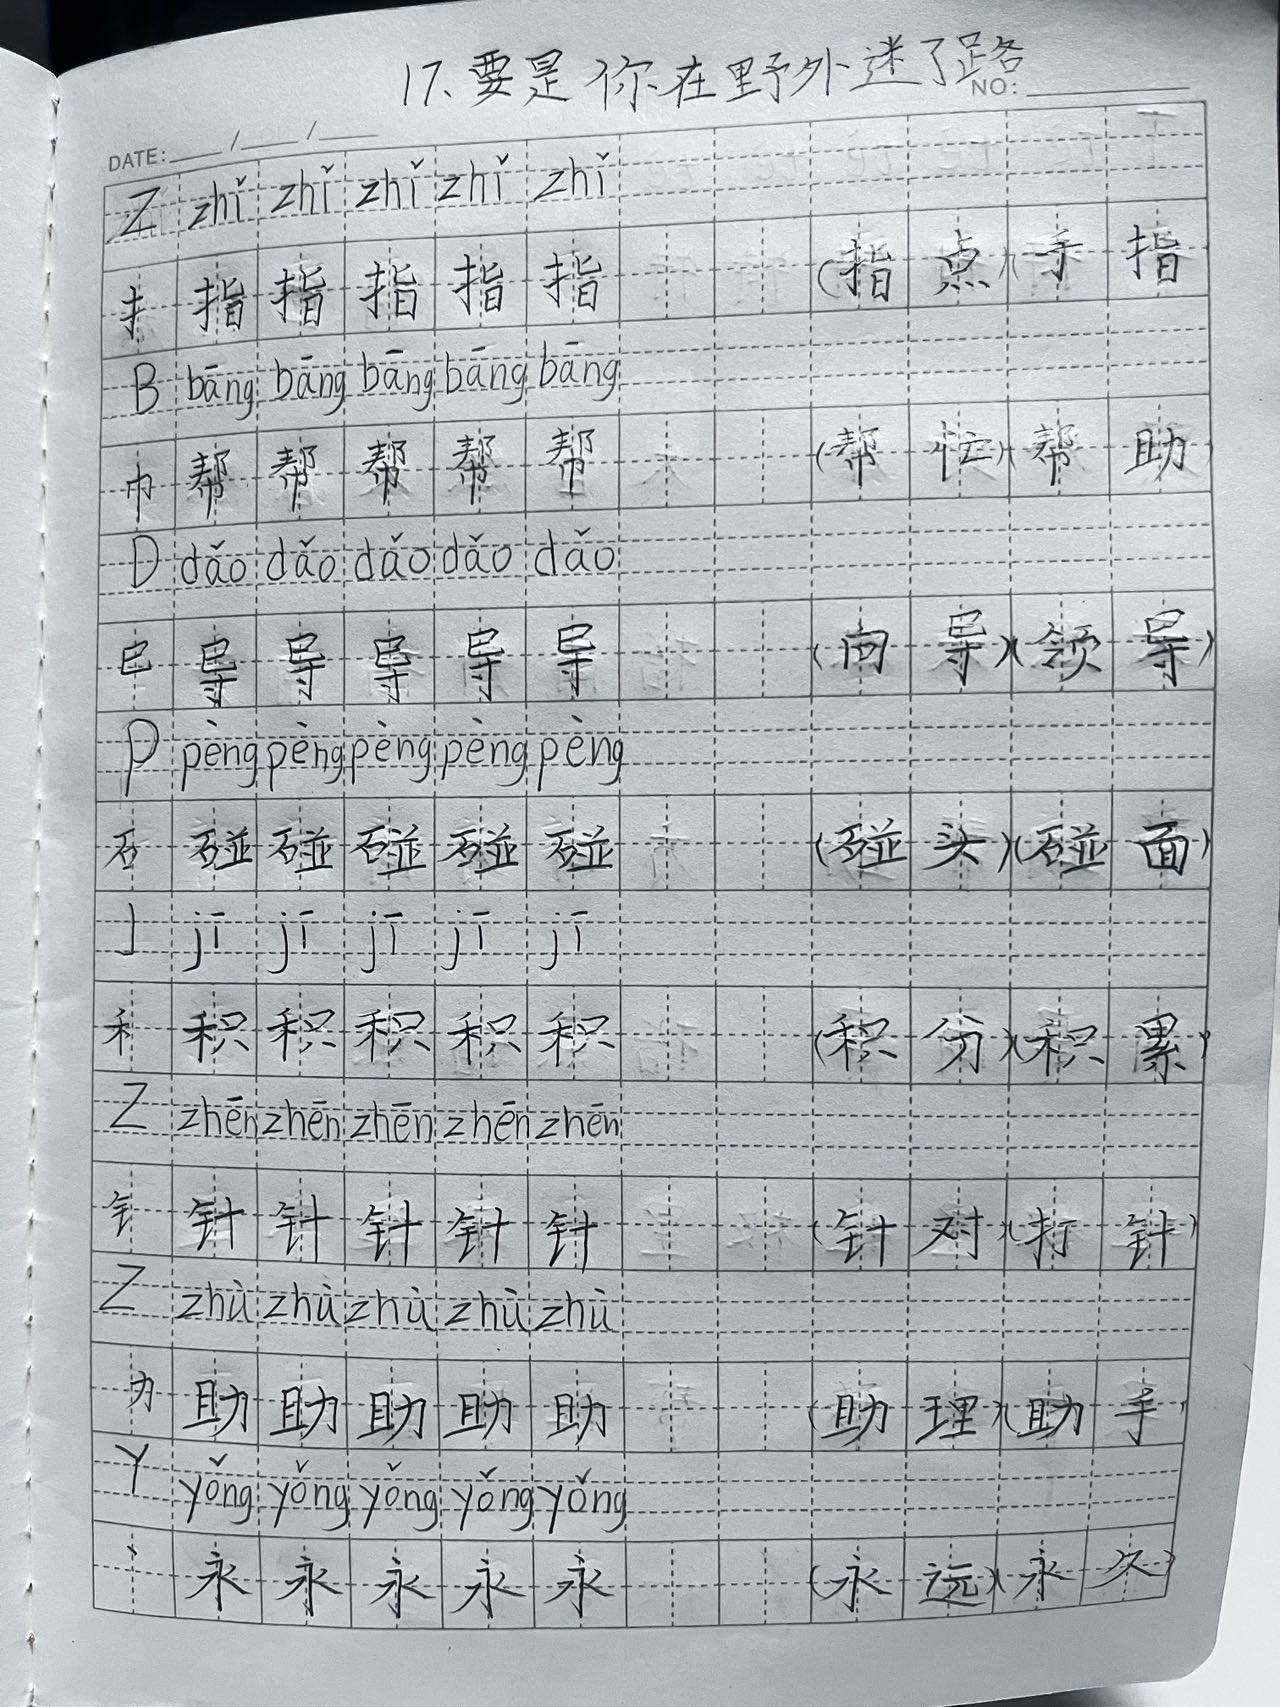 17.要是你在野外迷了路
NO:
DATE: / /
Z zhǐ zhǐ zhǐ zhǐ zhǐ
扌 指 指 指 指 指 (指点)(手指
B bāng bāng bāng bāng bāng
巾 帮 帮 帮 帮 帮 (帮忙)(帮助)
D dǎo dǎo dǎo dǎo dǎo
巳 导 导 导 导 导 (向导)(领导)
P pèng pèng pèng pèng pèng
石 碰 碰 碰 碰 碰 (碰头)(碰面)
J jī jī jī jī jī
禾 积 积 积 积 积 (积分)(积累)
Z zhēn zhēn zhēn zhēn zhēn
钅 针 针 针 针 针 (针对)(打针)
Z zhù zhù zhù zhù zhù
力 助 助 助 助 助 (助理)(助手)
Y yǒng yǒng yǒng yǒng yǒng
丶 永 永 永 永 永 (永远)(永久)